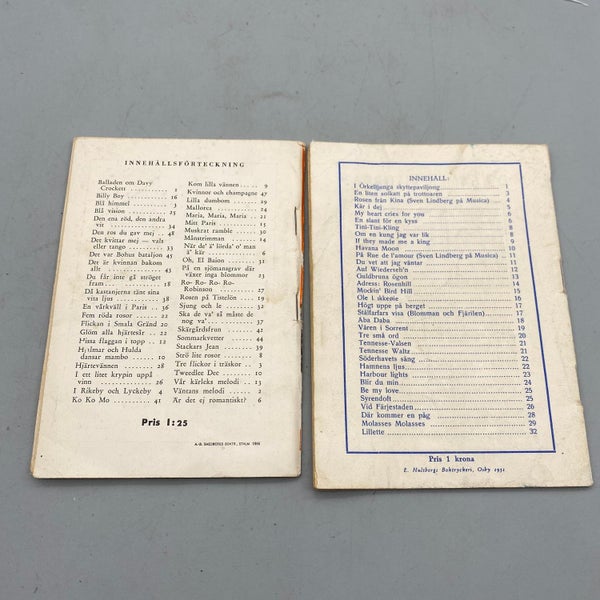 INNEHÅLLSFÖRTECKNING
Balladen om Davy
Crockett .......... 1
Billy Boy .......... 16
Blå himmel ........ 3
Blå vision .......... 25
Den ena röd, den andra
vit .............. 34
Den ros du gav mej .. 48
Det kvittar mej — vals
eller tango ........ 33
Det var Bohus bataljon 45
Det är kvinnan bakom
allt .............. 43
Du får inte gå sträget
fram .............. 18
Då kastanjerna tänt sina
vita ljus .......... 38
En vårkväll i Paris .. 36
Fem röda rosor ...... 22
Flickan i Smala Gränd 20
Glöm alla hjärtesår .. 22
Hissa flaggan i topp .. 12
Hjalmar och Hulda
dansar mambo ...... 10
Hjärtevännen ........ 28
I ett litet krypin uppå
vinn .............. 26
I Rikeby och Lyckeby 4
Ko Ko Mo .......... 41
Kom lilla vännen .... 9
Kvinnor och champagne 47
Lilla dumbom ........ 19
Mallorca ............ 14
Maria, Maria, Maria .. 21
Mitt Paris .......... 15
Muskrat ramble ...... 30
Månstrimman ........ 14
När de' ä' lörda' o' man
ä' kär ............ 6
Oh, El Baion ........ 31
På en sjömansgrav där
växer inga blommor 23
Ro- Ro- Ro- Ro-
Robinson .......... 27
Rosen på Tistelön .... 19
Sjung och le ........ 32
Ska de va' så måste de
nog va' ............ 37
Skärgårdsfrun ...... 42
Sommarkvetter ...... 44
Stackars Jean ........ 39
Strö lite rosor ...... 8
Tre flickor i träskor .. 3
Tweedlee Dee ........ 10
Vår kärleks melodi .. 13
Väntans melodi ...... 2
Är det ej romantiskt? 6
Pris 1:25
INNEHÅLL:
I Örkelljunga skyttepaviljong 1
En liten solkatt på trottoaren 3
Rosen från Kina (Sven Lindberg på Musica) 4
Kär i dej 5
My heart cries for you 6
En slant för en kyss 6
Tini-Tini-Kling 8
Om en kung jag var lik 8
If they made me a king 9
Havana Moon 10
På Rue de l'amour (Sven Lindberg på Musica) 11
Du vet att jag väntar 11
Auf Wiederseh'n 12
Guldbruna ögon 13
Adress: Rosenhill 14
Mockin' Bird Hill 15
Ole i åkeom 16
Högt uppe på berget 17
Ställarfars visa (Blomman och Fjärilen) 17
Aba Daba 18
Våren i Sorrent 19
Tre små ord 20
Tennesse-Valsen 21
Tennesse Waltz 21
Söderhavets sång 22
Hamnens ljus 22
Harbour lights 23
Blir du min 24
Be my love 25
Syrendoft 25
Vid Färjestaden 26
Där kommer en påg 28
Molasses Molasses 29
Lillette 32
Pris 1 krona
E. Hulbergs Boktryckeri, Osby 1951